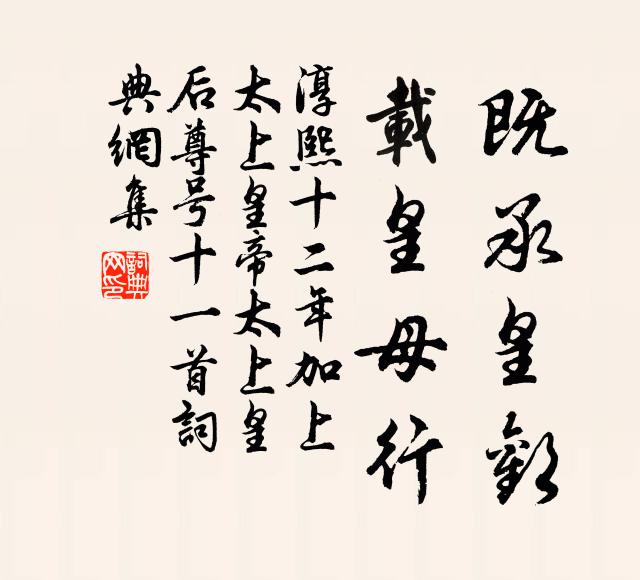 既承皇歡
載皇母行
淳熙十二年加上
太上皇帝太上皇
后尊号十一首詞
典網集
詞典網印